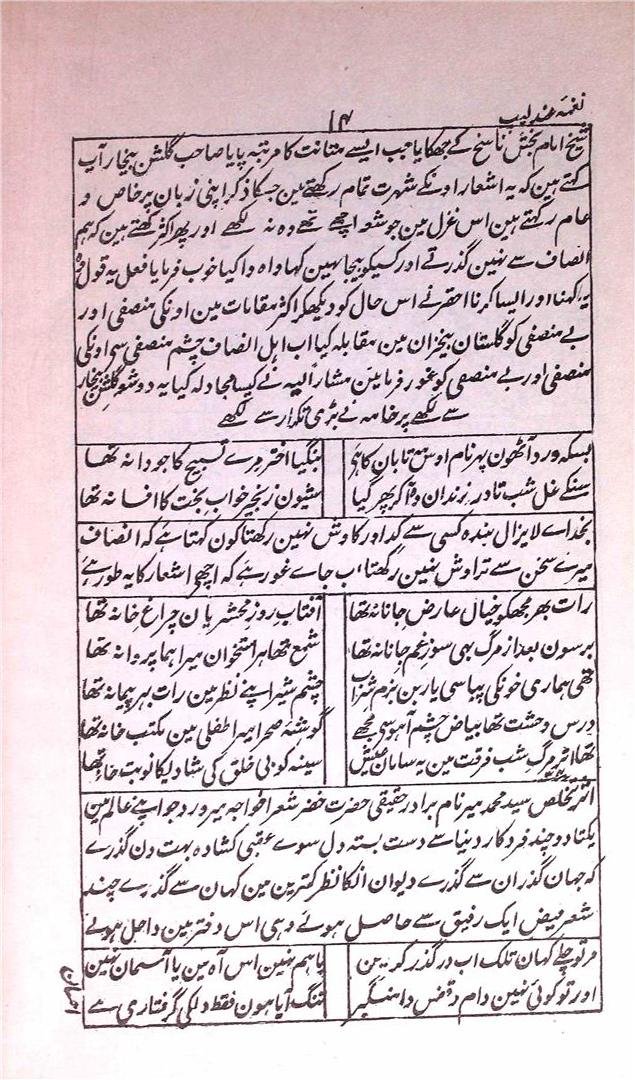 نغمۂ عندلیب
۱۴
شیخ امام بخش ناسخ کے جھکایا جب ایسے متانت کا مرتبہ پایا صاحب گلشن بیخار آپ
کہتے ہین کہ یہ اشعار اونکے شہرت تمام رکھتے ہین جسکا ذکر اپنی زبان پر خاص و
عام رکہتے ہین اس غزل مین جو شعر اچھے تھے وہ نہ لکھے اور پھر اکثر لکھتے ہین کہ ہم
انصاف سے نہین گذرتے اور کسیکو بیجا نہین کہا واہ وا کیا خوب فرمایا فعل یہ قول وہ
یہ کہنا اور ایسا کرنا احقر نے اس حال کو دیکھکر اکثر مقامات مین اونکی منصفی اور
بے منصفی کو گلستان بیخزان مین مقابلہ کیا اب اہل انصاف چشم منصفی سے اونکی
منصفی اور بے منصفی کو غور فرمایین مشار الیہ نے کیسا مجادلہ کیا یہ دو شعر گلشن بیخار
سے لکھے پر خامہ نے بڑی تکرار سے لکھے
بسکہ ورد آٹھون پہر نام اوس بت تابان کا ہی بنگیا اختر مرے تسبیح کا جو دانہ تھا
سنکے غل شب تا در زندان وہ آکر پھر گیا شیون زنجیر خواب بخت کا افسانہ تھا
بخداے لایزال بندہ کسی سے کد اور کاوش نہین رکھتا کون کہتا ہے کہ انصاف
میرے سخن سے تراوش نہین رکھتا اب جاے غور ہے کہ اچھی اشعار کا یہ طور ہے
رات بھر مجھکو خیال عارض جانانہ تھا آفتاب روز محشر یان چراغ خانہ تھا
برسون بعد از مرگ بھی سوز غم جانانہ تھا شمع تھا ہر استخوان میرا ہما پروانہ تھا
تھی ہماری خونکی پیاسی یار بن بزم شراب چشم شیر اپنے نظر مین رات ہر پیمانہ تھا
درس وحشت تھا بیاض چشم آہو سے مجھے گوشۂ صحرا ایہہ طفلی مین مکتب خانہ تھا
تھا اثر مرگ شب فرقت مین یہ سامان عیش سینہ کوبی خلق کی شادیکا نوبت خانہ تھا
اثر تخلص سید محمد میر نام برادر حقیقی حضرت خضر شعرا خواجہ میر درد جو اپنے عالم مین
یکتا دوچند فرد کار دنیا سے دست بستہ دل سوے عقبی کشادہ بہت دن گذرے
کہ جہان گذران سے گذرے دیوان انکا نظر کمترین مین کہان سے گذرے چند
شعر فیض ایک رفیق سے حاصل ہوئے وہی اس دفتر مین داخل ہوئے
مر تو چلے کہان تلک اب درگذر کرین یا ہم نہین اس آہ مین یا آسمان نہین
اور تو کوئی نہین دام و قفس دامنگیر تنگ آیا ہون فقط دلکی گرفتاری سے